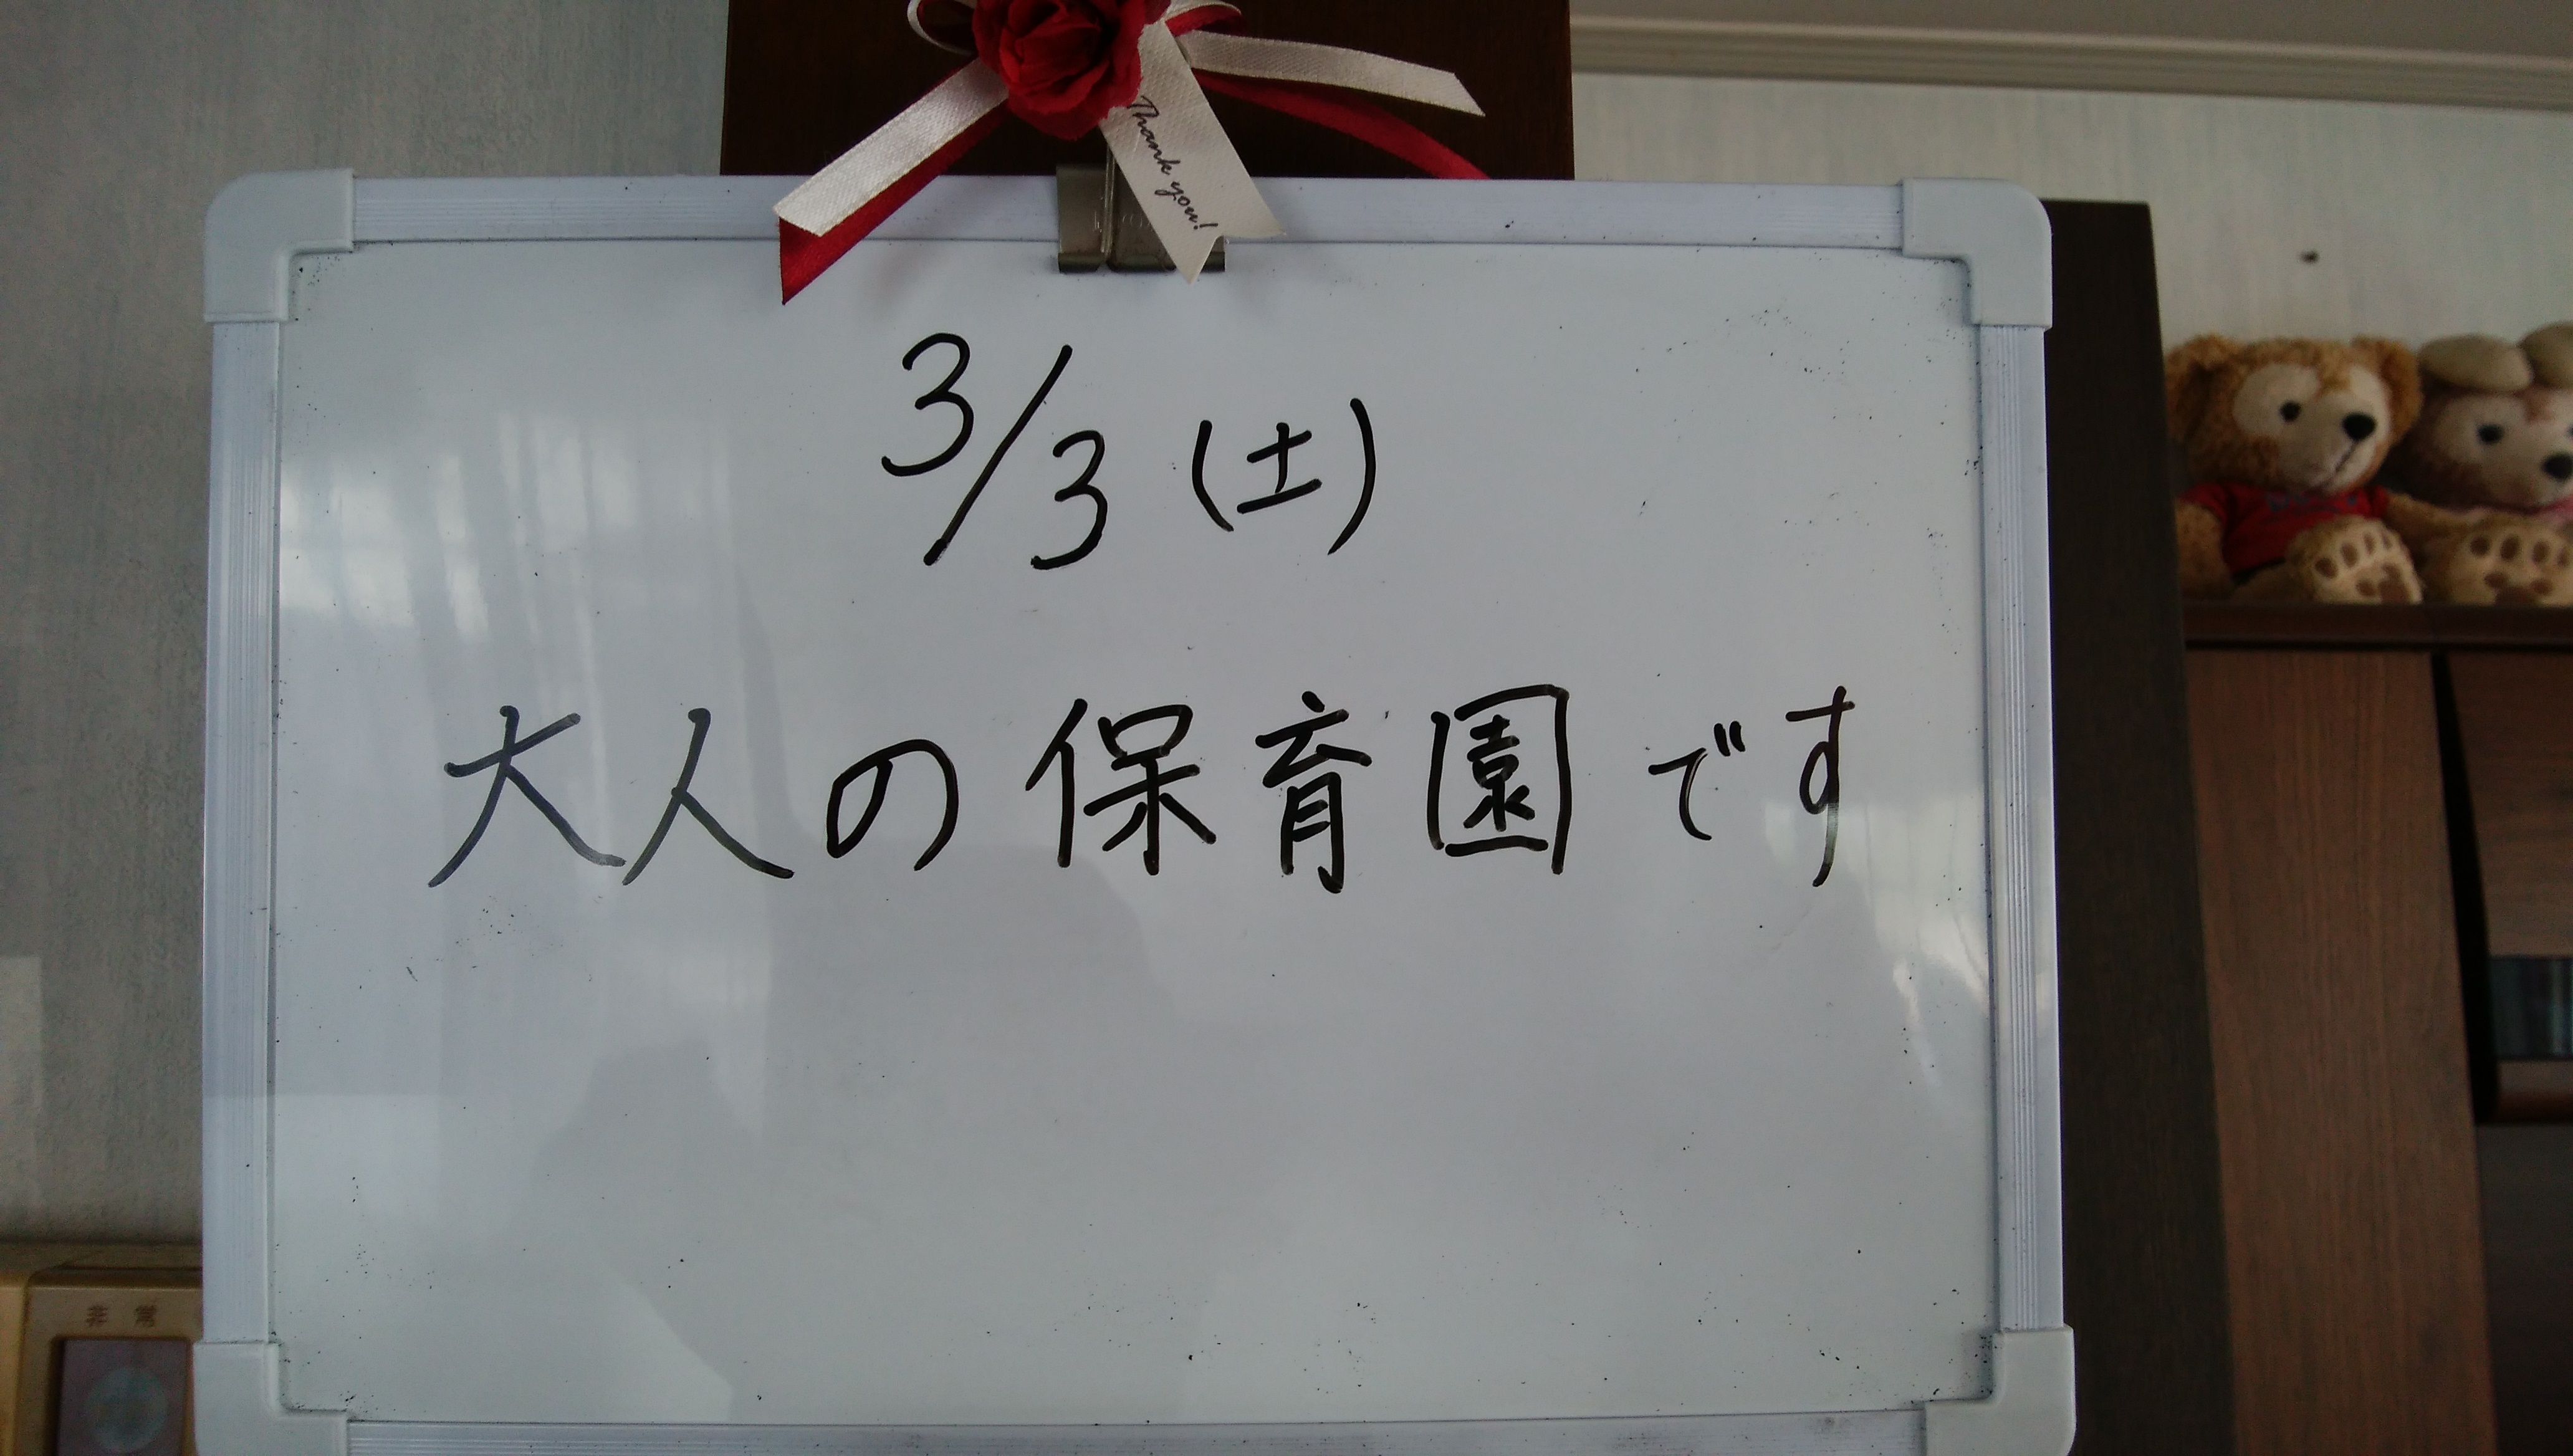 Thank you!
3/3 (土)
大人の保育園です